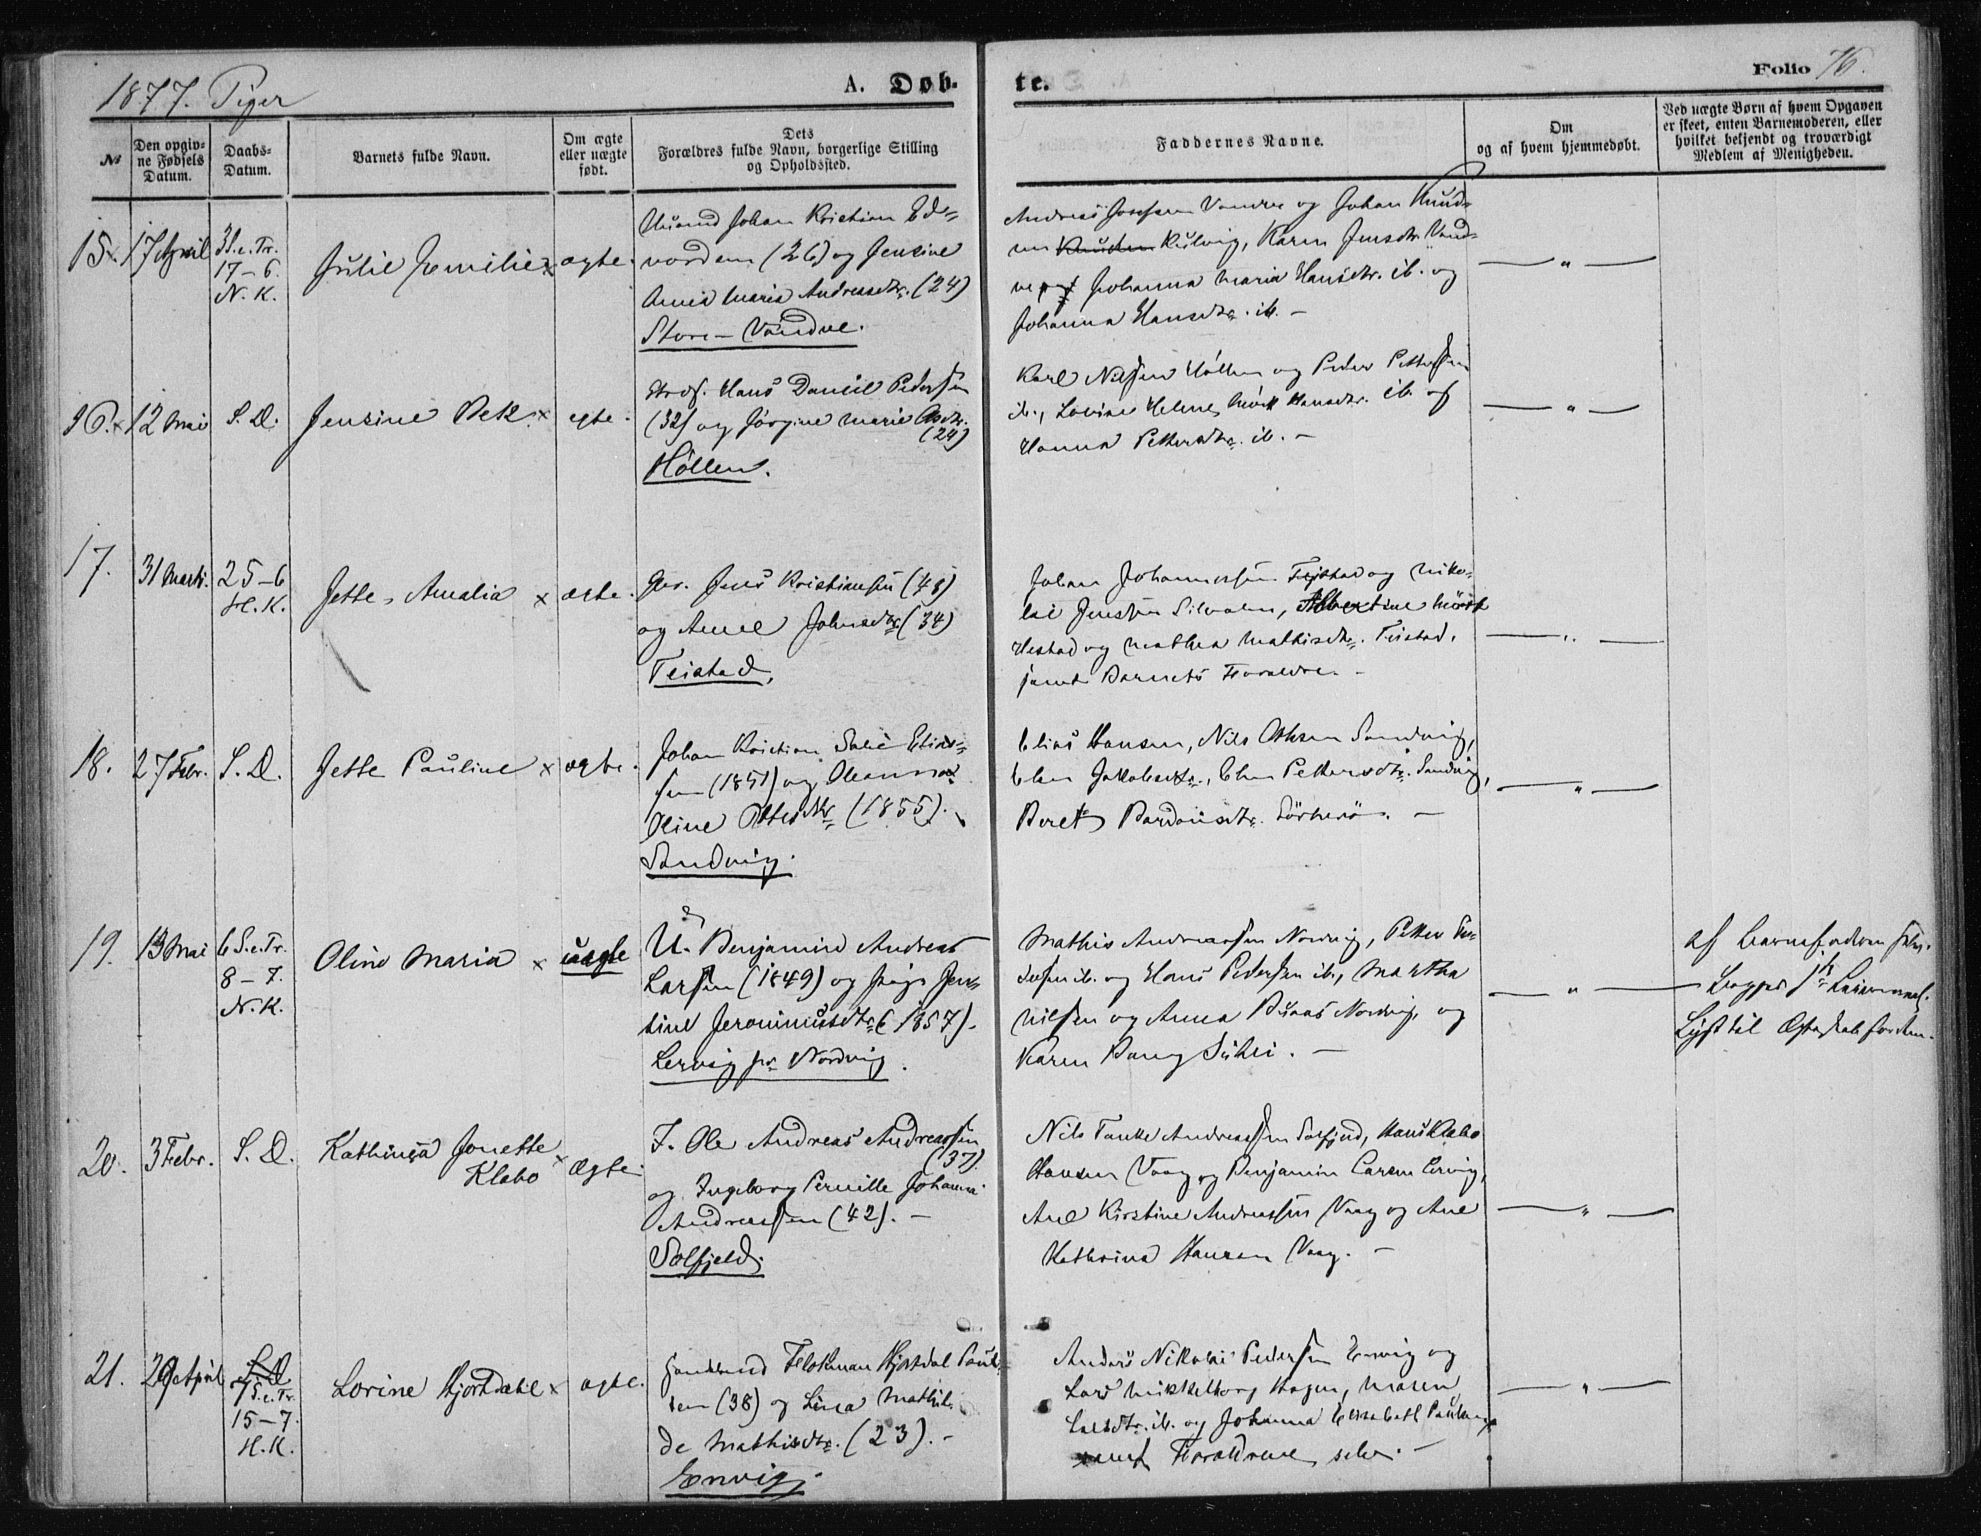 1877. Piger
A. Døb-
te.
Folio 76.
№
Den opgiv-
ne Fødsels
Datum.
Daabs-
Datum.
Barnets fulde Navn.
Om ægte
eller uægte
født.
Dets
Forældres fulde Navn, borgerlige Stilling
og Opholdssted.
Faddernes Navne.
Om
og af hvem hjemmedøbt.
Ved uægte Børn af hvem Opgaven
er skeet, enten Barnemoderen, eller
hvilket bekjendt og troværdigt
Medlem af Menigheden.
15. x 17 April
3 S. e. Tr.
17-6.
N. K.
Julie Emilie x
ægte.
Husmd Johan Kristian Ed-
vardsen (26) og Jensine
Anna Maria Andreasdtr. (24)
Store-Vandve.
Johan Knud-
sen Knudsen Kulvig, Karen Jensdtr. Vand-
ve, Johanna Maria Hansdtr. ib. og
Johanna Hansdtr. ib. -
— " —
16. x 12 Mai
S. D.
Jensine Bek x
egte.
Hans Daniel Pedersen
(32) og Jørgine Marie
(24)
Høllen.
Karl Nilsen Høllen og Peder Pettersen
ib., Lovise Helene Hansdtr. ib. og
Hanna Pettersdtr. ib. -
— " —
17.
31 Marts.
25-6
H. K.
Jette Amalia x
ægte.
Jens Kristiansen (48)
og Anne Johnsdtr (34)
Teistad.
Johan Johannessen Teistad og Niko-
lai Jenssen Silvalen, Albertine
Hestad og Mathea Mathisdtr. Teistad,
samt Barnets Forældre. -
— " —
18.
27 Febr.
S. D.
Jette Pauline x
ægte.
Johan Kristian Elias-
sen (1851) og Oleanna
Oline Ottesdtr (1855).
Sandvig.
Elias Hansen, Nils Ottesen Sandvig,
Elen Jakobsdtr., Elen Pettersdtr. Sandvig,
Beret Bardonsdtr. Sörherö. -
— " —
19.
13 Mai
6 S. e. Tr.
8-7.
N. K.
Oline Maria x
uægte
U. Benjamin Andreas
Larsen (1849) og Pige Jen-
sine Jeronimusdtr (1857).
Lervig pr Nordvig.
Mathis Andreassen Nordvig, Petter
ib. og Hans Pedersen ib., Martha
Nilsen og Anna Nordvig, og
Karen Bang
— " —
af Barnefaderen
20.
3 Febr.
S. D.
Kathinça Jonette
Klæbo x
Ægte.
F. Ole Andreas Andreassen
(37).
og Ingeborg Pernille Johanna
Andreassen (42). -
Solfjeld.
Nils Andreassen Solfjeld, Hans Klæbo
Hansen Vaag og Benjamin Larsen Lervig,
Ane Kirstine Andreassen Vaag og Ane
Kathrina Hansen Vaag. -
— " —
21.
29 April
S. D.
7 S. e. Tr.
15-7.
H. K.
Lorine Hjortdahl x
ægte.
Hjortdal Paul-
sen (38) og Lina Mathil-
de Mathisdtr. (23). -
Envig.
Anders Nikolai Pedersen Envig og
Lars Mikkelborg Hagen, Maren
Larsdtr. ib. og Johanna Elisabeth
samt Forældrene selv. -
— " —